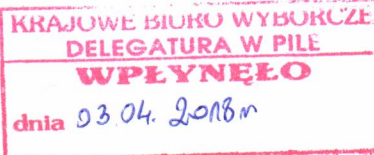 KRAJOWE BIURO WYBORCZE
DELEGATURA W PILE
WPŁYNĘŁO
dnia 03.04. 2018r